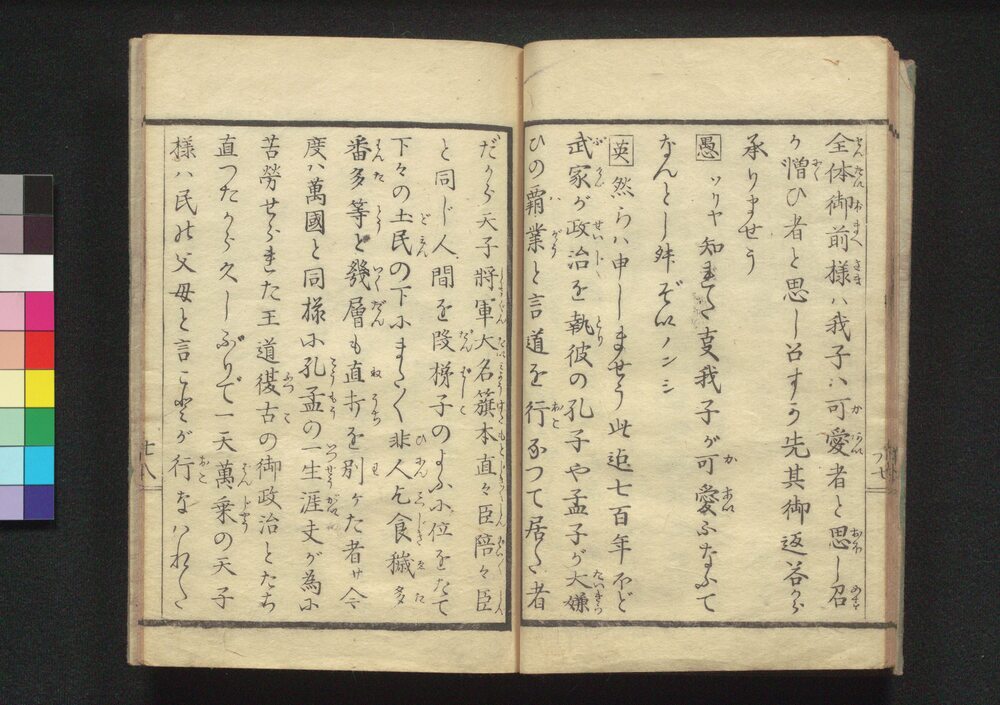 全体御前様ハ我子ハ可愛者と思し召
か憎ひ者と思し召すか先其御返答から
承りませう
愚 ソリヤ知れた事我子が可愛ふなふて
なんとし舛ぞいノンシ
英 然らハ申しませう此迠七百年ほど
武家が政治を執彼の孔子や孟子が大嫌
ひの覇業と言道を行なつて居た者
だから天子将軍大名旗本直々臣陪々臣
と同じ人間を段梯子のよふに位をたて
下々の土民の下にまた〱非人乞食穢多
番多等と幾層も直打を別けた者サ今
度ハ萬國と同様に孔孟の一生涯丈が為に
苦労せられた王道復古の御政治とたち
直つたから久しぶりで一天萬乗の天子
様ハ民の父母と言ことが行なハれた
廿八